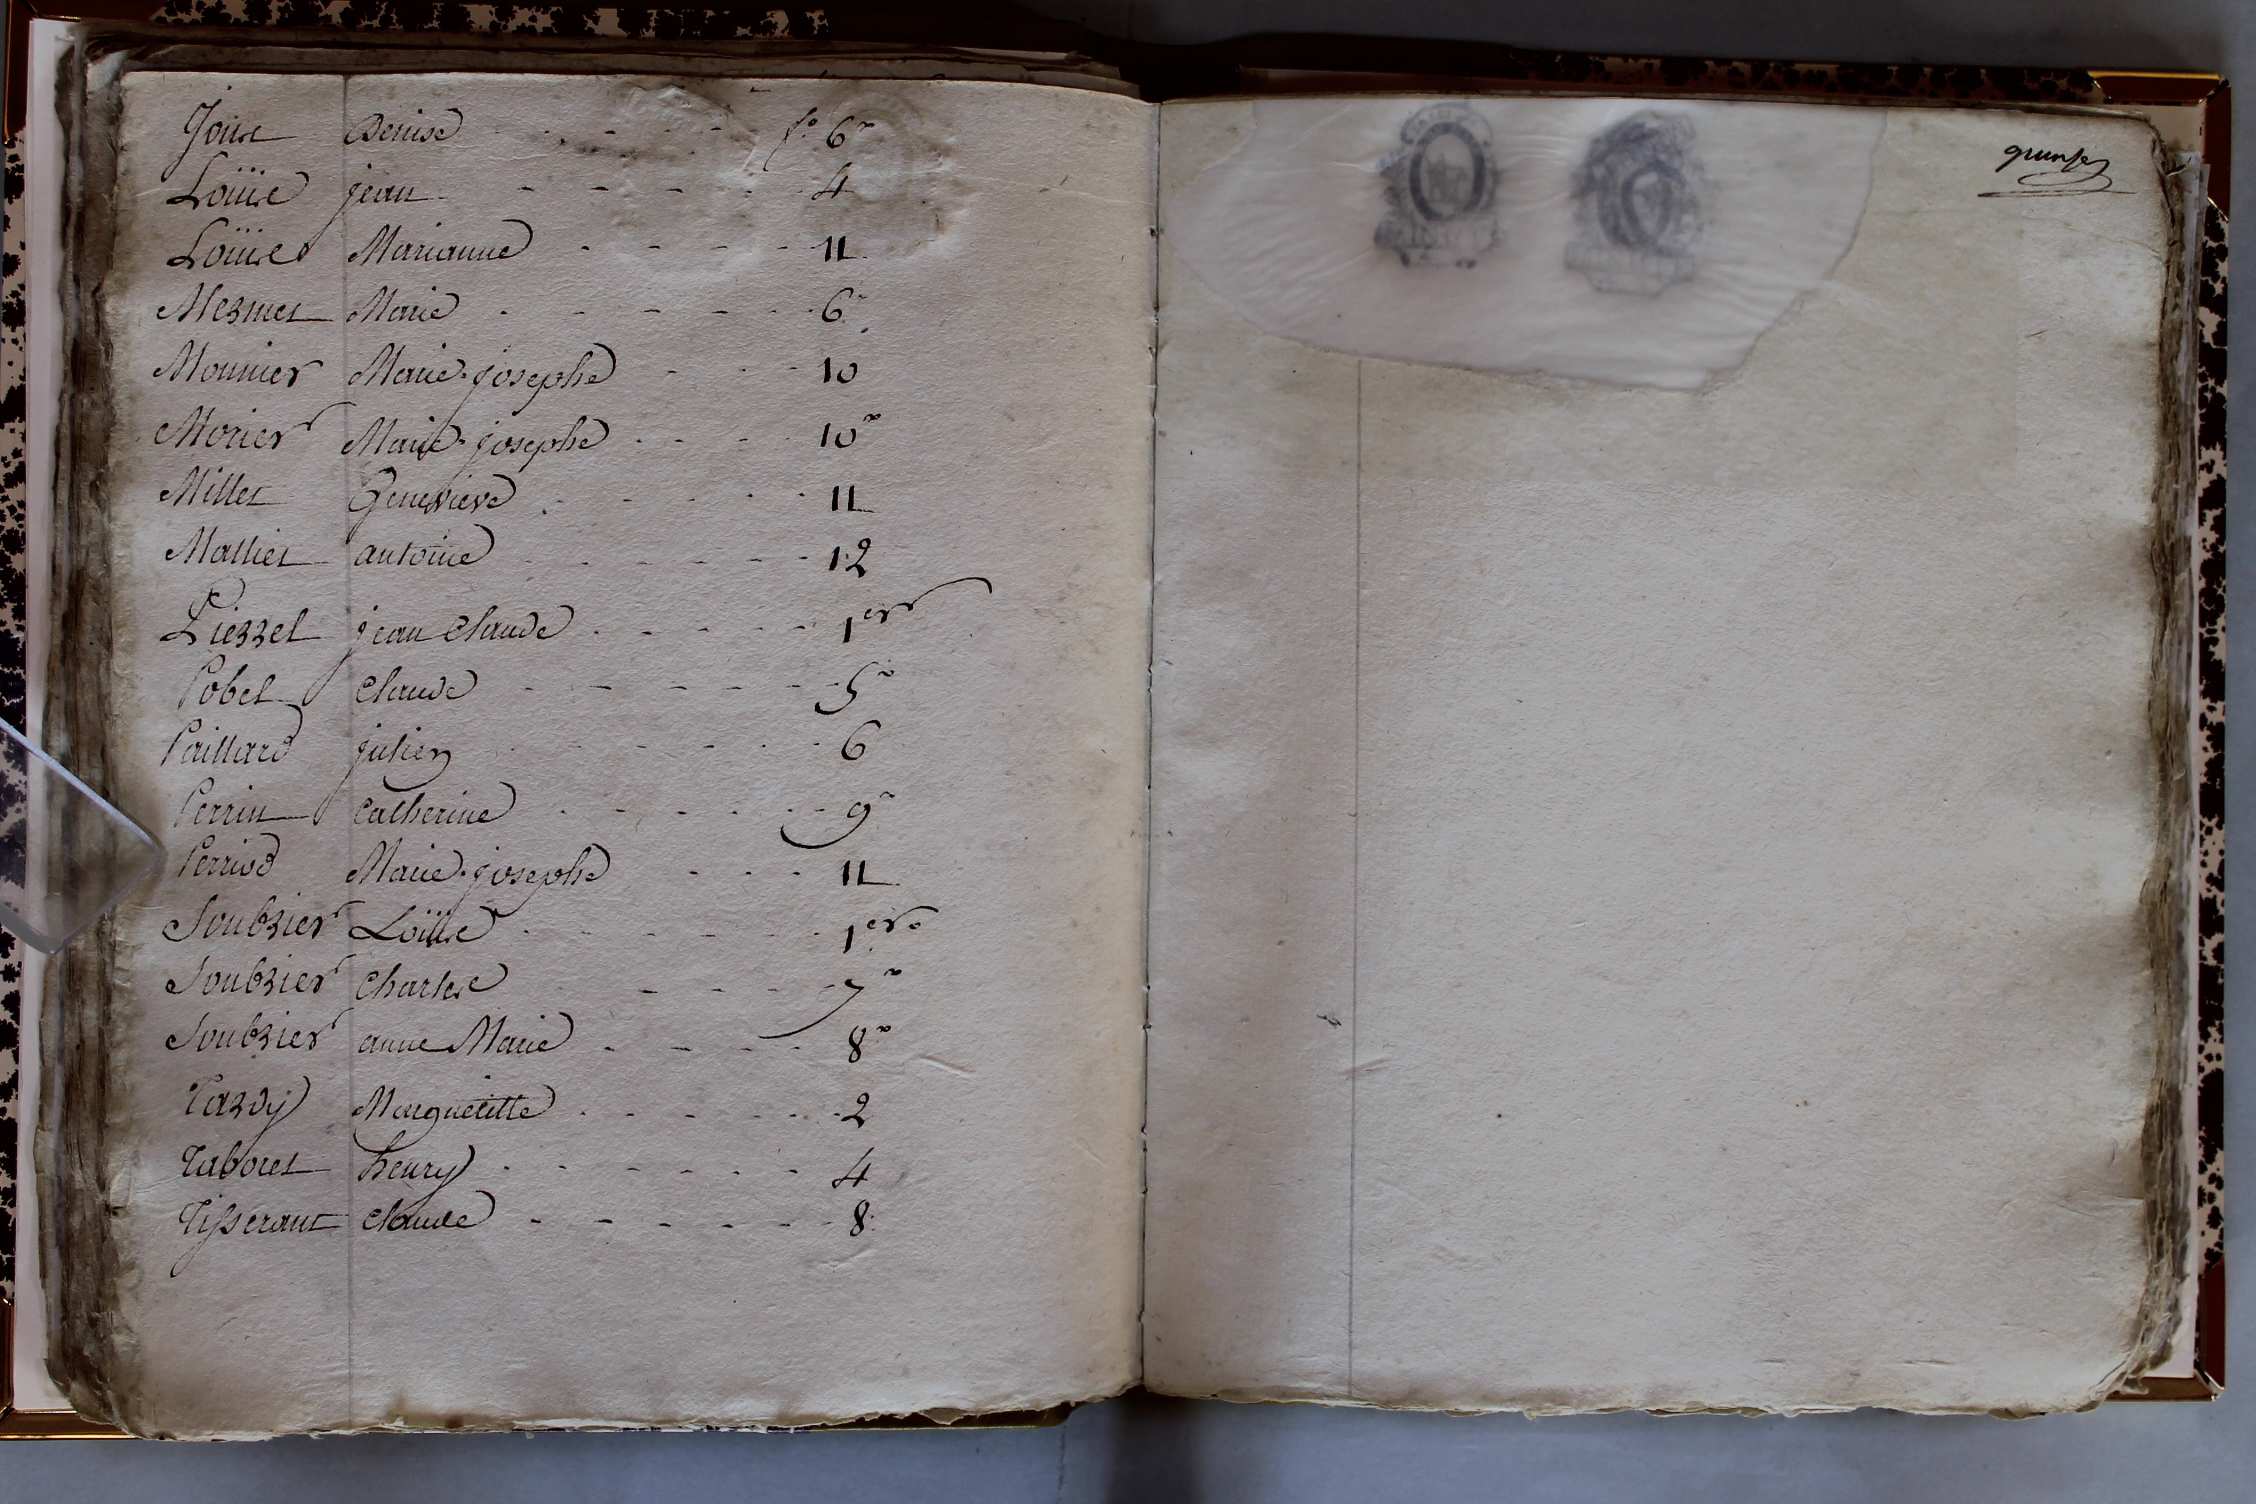 Joux Denise - - - - - f.º 6.º
Loüis jean - - - - - 4
Loüis Marianne - - - - 11
Mesmer Marie - - - - - 6.
Monnier Marie josephe - - - 10
Morier Marie josephe - - - 10º
Millet Genevieve - - - - 11
Mallier antoine - - - - - 12
Piezzel jean Claude - - - - 1er
Pobel Claude - - - - - 5º
Paillard julien - - - - - 6
Perrin Catherine - - - - 9º
Perriod Marie josephe - - - 11
Soubrier Loüise - - - - - 1ero
Soubrier Charles - - - - 7º
Soubrier anne Marie - - - - 8º
Tardy Margueritte - - - - 2
Taboret henry - - - - - 4
Tisserant Claude - - - - - 8.
quinze